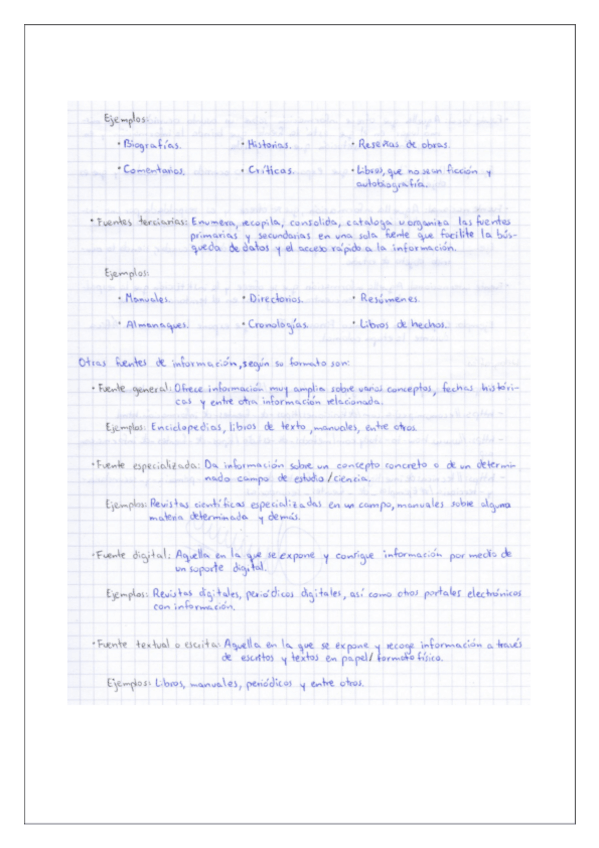 Ejemplos:
• Biografías. • Historias. • Reseñas de obras.
• Comentarios. • Críticas. • Libros, que no sean ficción y
autobiografía.
• Fuentes terciarias: Enumera, recopila, consolida, cataloga u organiza las fuentes
primarias y secundarias en una sola fuente que facilite la bús-
queda de datos y el acceso rápido a la información.
Ejemplos:
• Manuales. • Directorios. • Resúmenes.
• Almanaques. • Cronologías. • Libros de hechos.
Otras fuentes de información, según su formato son:
• Fuente general: Ofrece información muy amplia sobre varios conceptos, fechas históri-
cas y entre otra información relacionada.
Ejemplos: Enciclopedias, libros de texto, manuales, entre otros.
• Fuente especializada: Da información sobre un consepto concreto o de un determi-
nado campo de estudio / ciencia.
Ejemplos: Revistas científicas especializadas en un campo, manuales sobre alguna
materia determinada y demás.
• Fuente digital: Aquella en la que se expone y consigue información por medio de
un suporte digital.
Ejemplos: Revistas digitales, periódicos digitales, así como otros portales electrónicos
con información.
• Fuente textual o escrita: Aquella en la que se expone y recoge información a través
de escritos y textos en papel / formato físico.
Ejemplos: Libros, manuales, periódicos y entre otros.